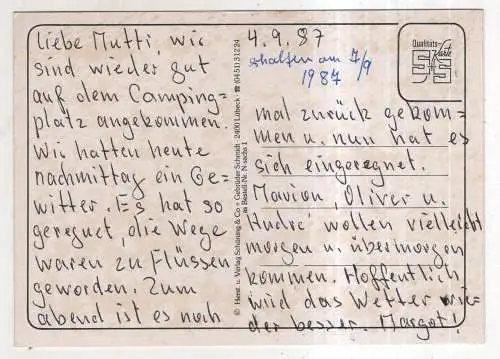 liebe Mutti, wir
sind wieder gut
auf dem Camping-
platz angekommen.
Wir hatten heute
nachmittag ein Ge-
witter. Es hat so
geregnet, die Wege
waren zu Flüssen
geworden. Zum
abend ist es noch
4.9.87
erhalten am 7/9
1987
mal zurück gekom-
men u. nun hat es
sich eingeregnet.
Marion, Oliver u.
André wollen vielleicht
morgen u. übermorgen
kommen. Hoffentlich
wird das Wetter wie-
der besser. Margot!
Qualitäts-
Karte
© Herst. u. Verlag Schöning & Co + Gebrüder Schmidt · 24001 Lübeck · ☎ (0451) 31224
Bestell-Nr. N sechs 1